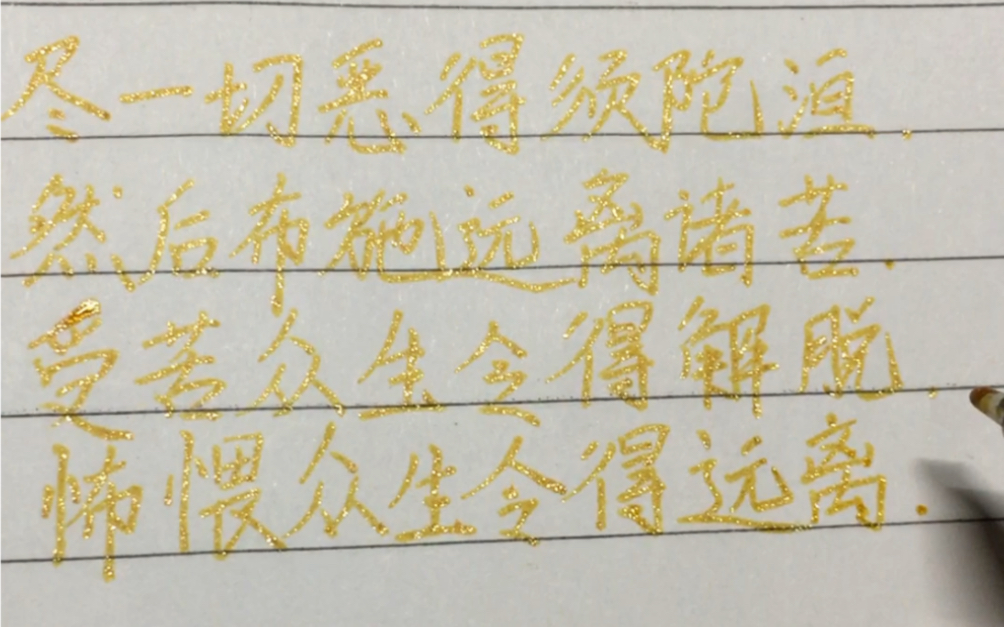 尽一切恶得须陀洹.
然后布施远离诸苦.
受苦众生令得解脱.
怖愄众生令得远离.